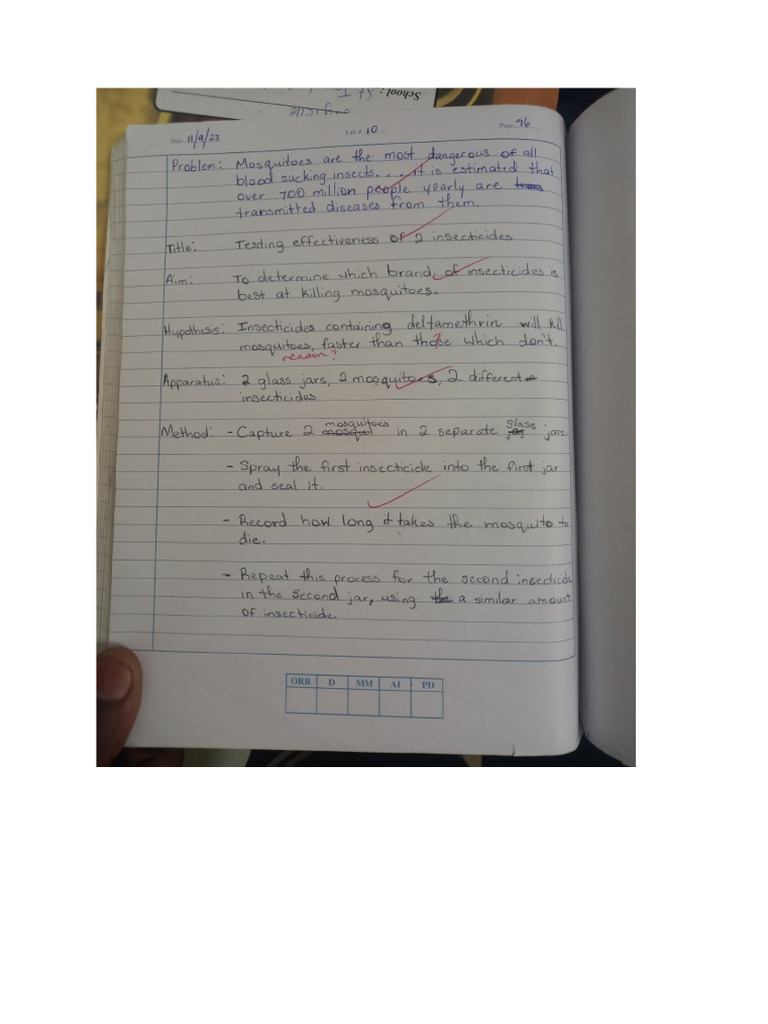 School: St
Date 11/9/23 Lab # 10 Page 46
Problem: Mosquitoes are the most dangerous of all
blood sucking insects... it is estimated that
over 700 million people yearly are
transmitted diseases from them.
Title: Testing effectiveness of 2 insecticides
Aim: To determine which brand, of insecticides is
best at killing mosquitoes.
Hypothesis: Insecticides containing deltamethrin will kill
mosquitoes, faster than those which don't.
reason?
Apparatus: 2 glass jars, 2 mosquitoes, 2 different
insecticides
Method: - Capture 2 mosquitoes in 2 separate glass jars.
- Spray the first insecticide into the first jar
and seal it.
- Record how long it takes the mosquito to
die.
- Repeat this process for the second insecticide
in the second jar, using a similar amount
of insecticide.
ORR D MM AI PD